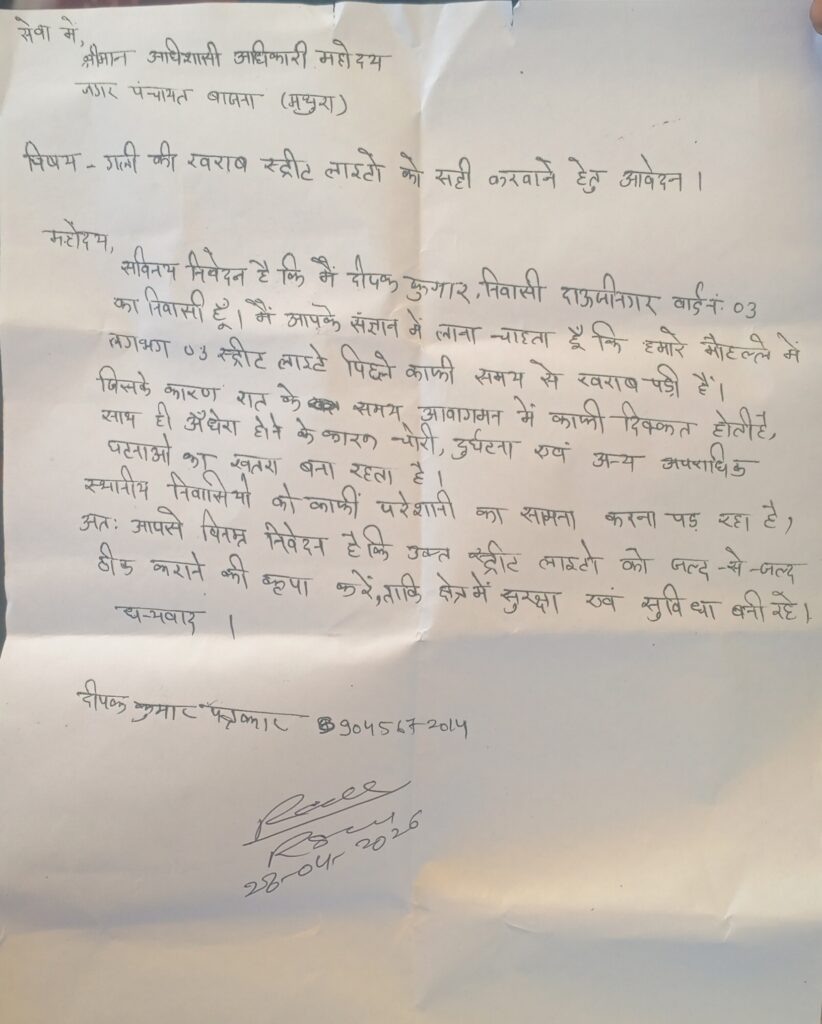 सेवा में,
श्रीमान अधिशासी अधिकारी महोदय
नगर पंचायत बाजना (मथुरा)
विषय - गली की खराब स्ट्रीट लाइटो को सही करवाने हेतु आवेदन ।
महोदय,
सविनय निवेदन है कि मैं दीपक कुमार, निवासी दाऊजीनगर वार्ड नं: 03
का निवासी हूँ। मैं आपके संज्ञान में लाना चाहता हूँ कि हमारे मौहल्ले में
लगभग 03 स्ट्रीट लाइटे पिछले काफी समय से खराब पड़ी हैं।
जिसके कारण रात के समय आवागमन में काफी दिक्कत होती है,
साथ ही अँधेरा होने के कारण चोरी, दुर्घटना एवं अन्य अपराधिक
घटनाओ का खतरा बना रहता है।
स्थानीय निवासियो को काफी परेशानी का सामना करना पड़ रहा है,
अत: आपसे विनम्र निवेदन है कि उक्त स्ट्रीट लाइटो को जल्द-से-जल्द
ठीक कराने की कृपा करें, ताकि क्षेत्र में सुरक्षा एवं सुविधा बनी रहे।
धन्यवाद ।
दीपक कुमार पत्रकार 9045672014
28-04-2026